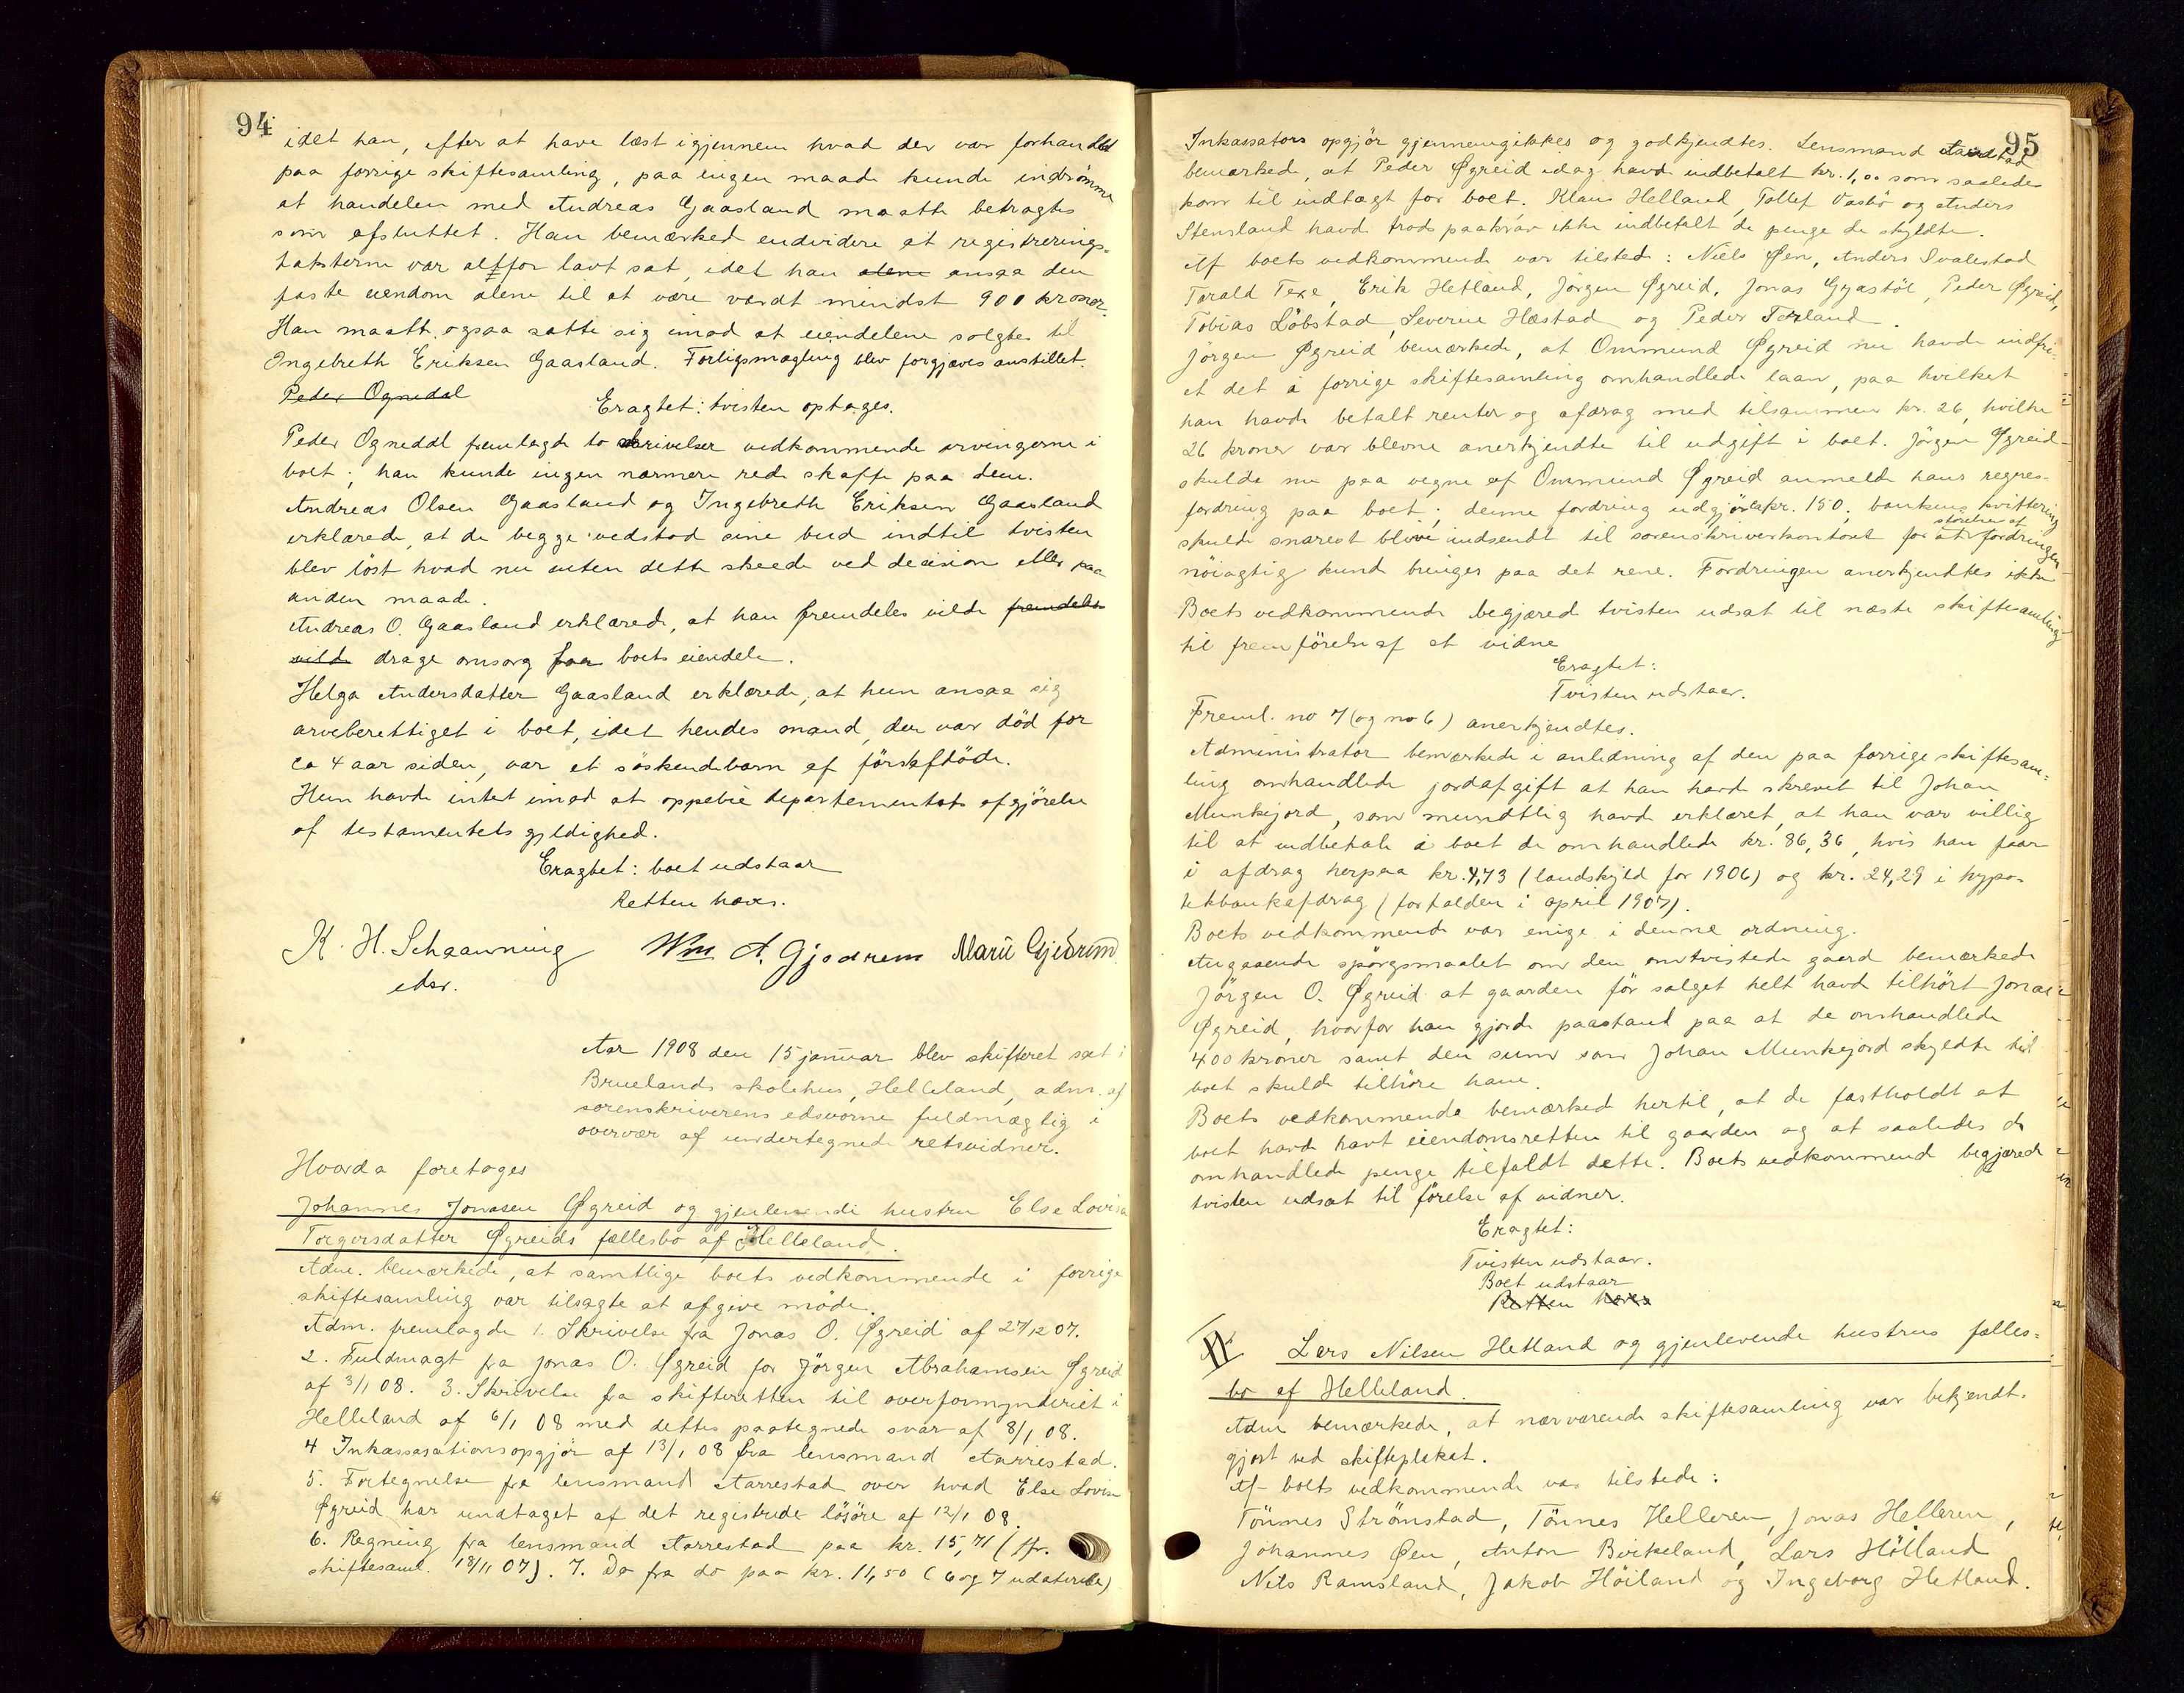 94
idet han, efter at have læst igjennem hvad der var forhandlet
paa forrige skiftesamling, paa ingen maade kunde indrömme
at handelen med Andreas Gaasland maatte betragtes
som afsluttet. Han bemærked endvidere at registrerings-
taksterne var altfor lavt sat, idet han alene ansaa den
faste eiendom alene til at være værdt mindst 900 kroner.
Han maatte ogsaa sætte sig imod at eiendelene solgtes til
Ingebreth Eriksen Gaasland. Forligsmægling blev forgjæves anstillet.
Peder Ognedal
Eragtet: tvisten optages.
Peder Ognedal fremlagde to skrivelser vedkommende arvingerne i
boet; han kunde ingen nærmere rede skaffe paa dem.
Andreas Olsen Gaasland og Ingebreth Eriksen Gaasland
erklærede, at de begge vedstod sine bud indtil tvisten
blev löst hvad nu enten dette skeede ved decision eller paa
anden maade.
Andreas O. Gaasland erklærede, at han fremdeles vilde fremdeles
vilde drage omsorg for boets eiendele.
Helga Andersdatter Gaasland erklærede, at hun ansaa sig
arveberettiget i boet, idet hendes mand, der var död for
ca 4 aar siden, var et söskendebarn af förstafdöde.
Hun havde intet imod at oppebie departementets afgjörelse
af testamentets gyldighed.
Eragtet: boet udstaar
Retten hæves.
K. H. Schaanning Wm A. Gjedrem Marie Gjedrem
edsv.
Aar 1908 den 15 januar blev skifteret sat i
Bruelands skolehus, Helleland, adm. af
sorenskriverens edsvorne fuldmægtig i
overvær af undertegnede retsvidner.
Hvorda foretoges
Johannes Jonasen Øgreid og gjenlevende hustru Else Lovisa
Torgersdatter Øgreids fællesbo af Helleland.
Adm. bemærkede, at samtlige boets vedkommende i forrige
skiftesamling var tilsagte at afgive möde.
Adm. fremlagde 1. Skrivelse fra Jonas O. Øgreid af 27/12 07.
2. Fuldmagt fra Jonas O. Øgreid for Jörgen Abrahamsen Øgreid
af 3/1 08. 3. Skrivelse fra skifteretten til overformynderiet i
Helleland af 6/1 08 med dettes paategnede svar af 8/1 08.
4 Inkassasationsopgjör af 13/1 08 fra lensmand Aarrestad.
5. Fortegnelse fra lensmand Aarrestad over hvad Else Lovise
Øgreid har undtaget af det registrerede lösöre af 12/1 08.
6. Regning fra lensmand Aarrestad paa kr. 15,71 (jfr.
skiftesaml. 18/11 07). 7. Do fra do paa kr. 11,50 (6 og 7 udaterede)
95
Inkassators opgjör gjennemgikkes og godkjendtes. Lensmand Aarrestad
bemærkede, at Peder Øgreid idag havde indbetalt kr. 1,00 som saaledes
kom til indtægt for boet. Klaus Helland, Tollef Vasbö og Anders
Stensland havde trods paakrav ikke indbetalt de penge de skyldte.
Af boets vedkommende var tilstede: Niels Øen, Anders Svalestad
Torald Texe, Erik Hetland, Jörgen Øgreid, Jonas Gyastöl, Peder Øgreid,
Tobias Löbstad, Severine Hæstad og Peder Terland.
Jörgen Øgreid bemærkede, at Ommund Øgreid nu havde indfri-
et det i forrige skiftesamling omhandlede laan, paa hvilket
han havde betalt renter og afdrag med tilsammen kr. 26, hvilke
26 kroner var blevne anerkjendte til udgift i boet. Jörgen Øgreid
skulde nu paa vegne af Ommund Øgreid anmelde hans regres-
fordring paa boet; denne fordring udgjör ca kr. 150; bankens kvittering
skulde snarest blive indsendt til sorenskriverkontoret for at fordringens störelse af
nöiagtig kunde bringes paa det rene. Fordringen anerkjendtes ikke
Boets vedkommende begjæred tvisten udsat til næste skiftesamling
til fremförelse af et vidne
Eragtet:
Tvisten udstaar.
Freml. no 7 (og no 6) anerkjendtes.
Administrator bemærkede i anledning af den paa forrige skiftesam-
ling omhandlede jordafgift at han havde skrevet til Johan
Munkejord, som mundtlig havde erklæret, at han var villig
til at indbetale i boet de omhandlede kr. 86,36, hvis han faar
i afdrag herpaa kr. 4,73 (landskyld for 1906) og kr. 24,29 i hypo-
tekbankafdrag (forfalden i april 1907).
Boets vedkommende var enige i denne ordning.
Angaaende spörgsmaalet om den omtvistede gaard bemærkede
Jörgen O. Øgreid at gaarden för salget helt havde tilhört Jonas
Øgreid, hvorfor han gjorde paastand paa at de omhandlede
400 kroner samt den sum som Johan Munkejord skyldte til
boet skulde tilhöre ham.
Boets vedkommende bemærked hertil, at de fastholdt at
boet havde havt eiendomsretten til gaarden og at saaledes de
omhandlede penge tilfaldt dette. Boets vedkommende begjærede
tvisten udsat til förelse af vidner.
Eragtet:
Tvisten udstaar.
Boet udstaar
Retten hæves
II Lars Nilsen Hetland og gjenlevende hustrus fælles-
bo af Helleland.
Adm bemærkede, at nærværende skiftesamling var bekjendt-
gjort ved skifteplakat.
Af boets vedkommende var tilstede:
Tönnes Strömstad, Tönnes Helleren, Jonas Helleren,
Johannes Øen, Anton Birkeland, Lars Hölland
Nils Ramsland, Jakob Höiland og Ingeborg Hetland.